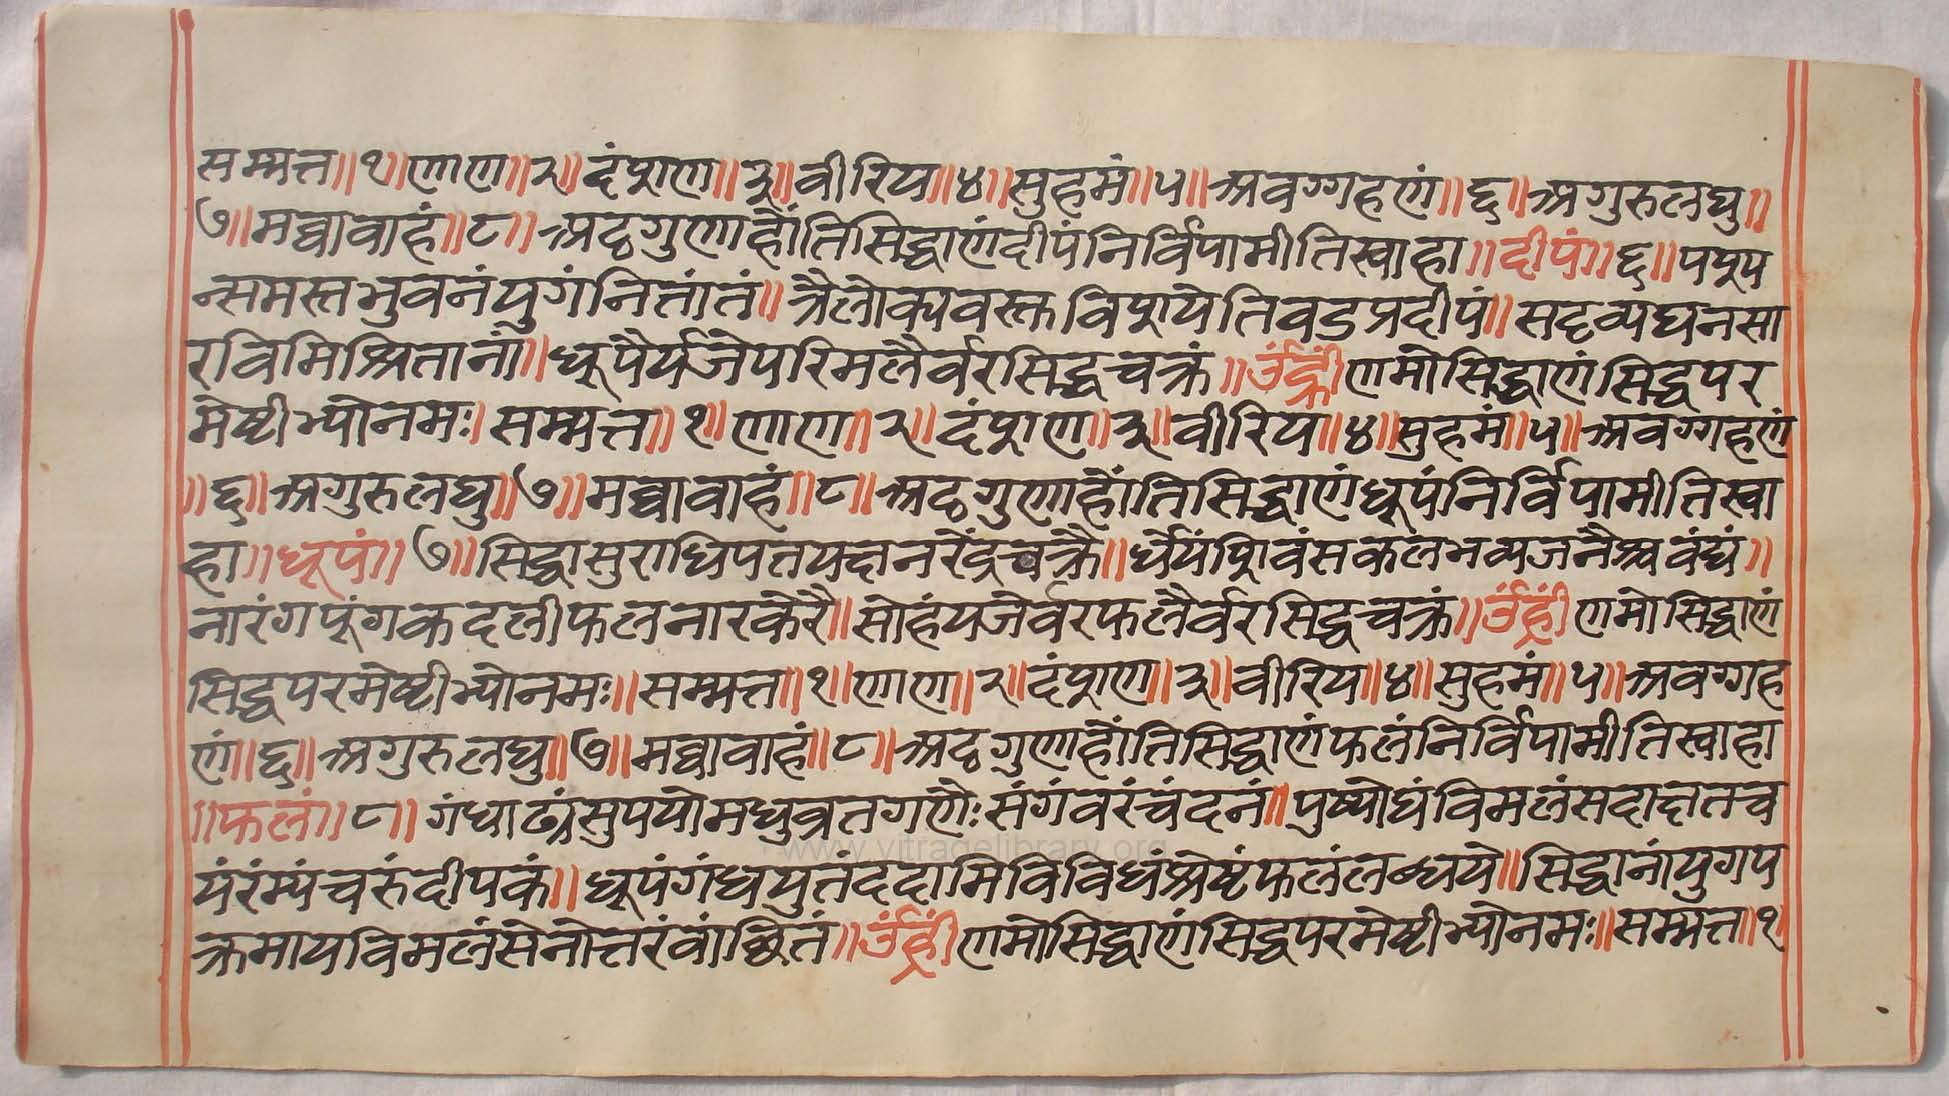 सम्मत्त॥१॥णाण॥२॥दंशण॥३॥वीरिय॥४॥सुहमं॥५॥अवग्गहणं॥६॥अगुरुलघु॥
७॥मव्वावाहं॥८॥अट्ठगुणाहोंतिसिद्धाणंदीपंनिर्विपामीतिस्वाहा॥दीपं॥६॥पश्प
न्समस्तभुवनंयुगंनितांतं॥त्रैलोक्यवस्तविशयेतिवडप्रदीपं॥सद्दव्यघनसा
रविमिश्रितानां॥धूपैर्यजेपरिमलैर्वरसिद्धचक्रं॥उँह्रीँणमोसिद्धाणंसिद्धपर
मेष्टीभ्योनमः।सम्मत्त॥१॥णाण॥२॥दंशण॥३॥वीरिय॥४॥सुहमं॥५॥अवग्गहणं
॥६॥अगुरुलघु॥७॥मव्वावाहं॥८॥अट्ठगुणाहोंतिसिद्धाणंधूपंनिर्विपामीतिस्वा
हा॥धूपं॥७॥सिद्धासुराधिपतयक्षनरेंद्रचक्रै॥र्धेयंशिवंसकलभव्यजनैश्चवंद्यं॥
नारंगपूंगकदलीफलनारकेरै॥सोहंयजेर्वरफलैर्वरसिद्धचक्रं॥उँह्रीँणमोसिद्धाणं
सिद्धपरमेष्टीभ्योनमः॥सम्मत्त॥१॥णाण॥२॥दंशण॥३॥वीरिय॥४॥सुहमं॥५॥अवग्गह
णं॥६॥अगुरुलघु॥७॥मव्वावाहं॥८॥अट्ठगुणाहोंतिसिद्धाणंफलंनिर्विपामीतिस्वाहा
॥फलं॥८॥गंधाढ्यंसुपयोमधुव्रतगणैःसंगंवरंचंदनं॥पुष्पोघंविमलंसदाक्षतच
यंरंम्यंचरुंदीपकं॥धूपंगंधयुतंददामिविविधंश्रेष्टंफलंलब्धये॥सिद्धानांयुगप
क्रमायविमलंसेनोत्तरंवांछितं॥उँह्रीँणमोसिद्धाणंसिद्धपरमेष्टीभ्योनमः॥सम्मत्त॥१
www.vitragelibrary.org